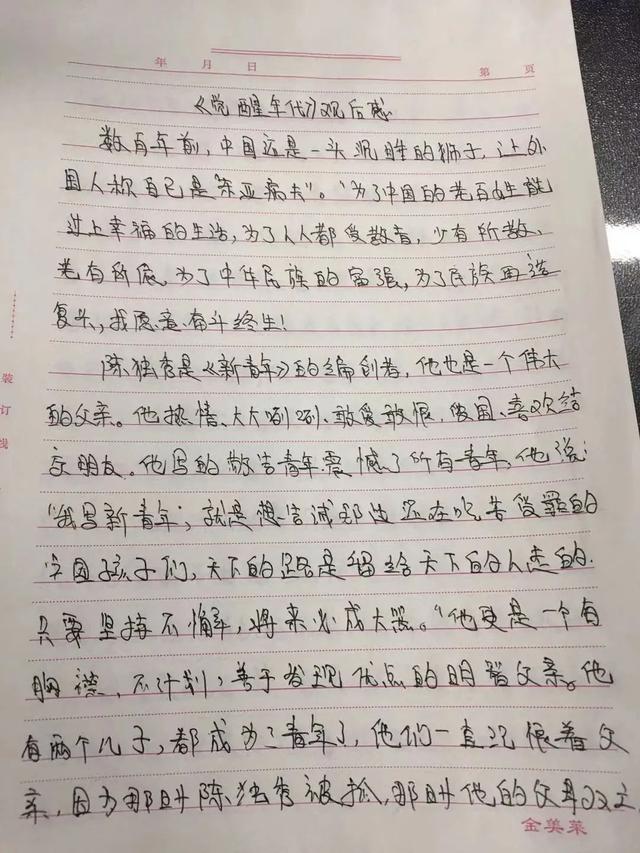 年 月 日 第 页
《觉醒年代》观后感
数百年前，中国还是一头沉睡的狮子，让外
国人称自己是"东亚病夫"。"为了中国的老百姓能
过上幸福的生活，为了人人都受教育，少有所教、
老有所依。为了中华民族的富强，为了民族再造
复兴，我愿意奋斗终生！
陈独秀是《新青年》的编创者，他也是一个伟大
的父亲。他热情、大大咧咧、敢爱敢恨，爱国、喜欢结
交朋友。他写的敬告青年震憾了所有青年，他说：
"我写新青年，就是想告诫那些还在吃苦受罪的
中国孩子们，天下的路是留给天下的人走的.
只要坚持不懈，将来必成大器。"他更是一个有
胸襟，不计划，善于发现优点的明智父亲。他
有两个儿子，都成为了青年了，他们一直沉恨着父
亲，因为那时陈独秀被抓，那时他的父母双亡
装
订
线
金美莱